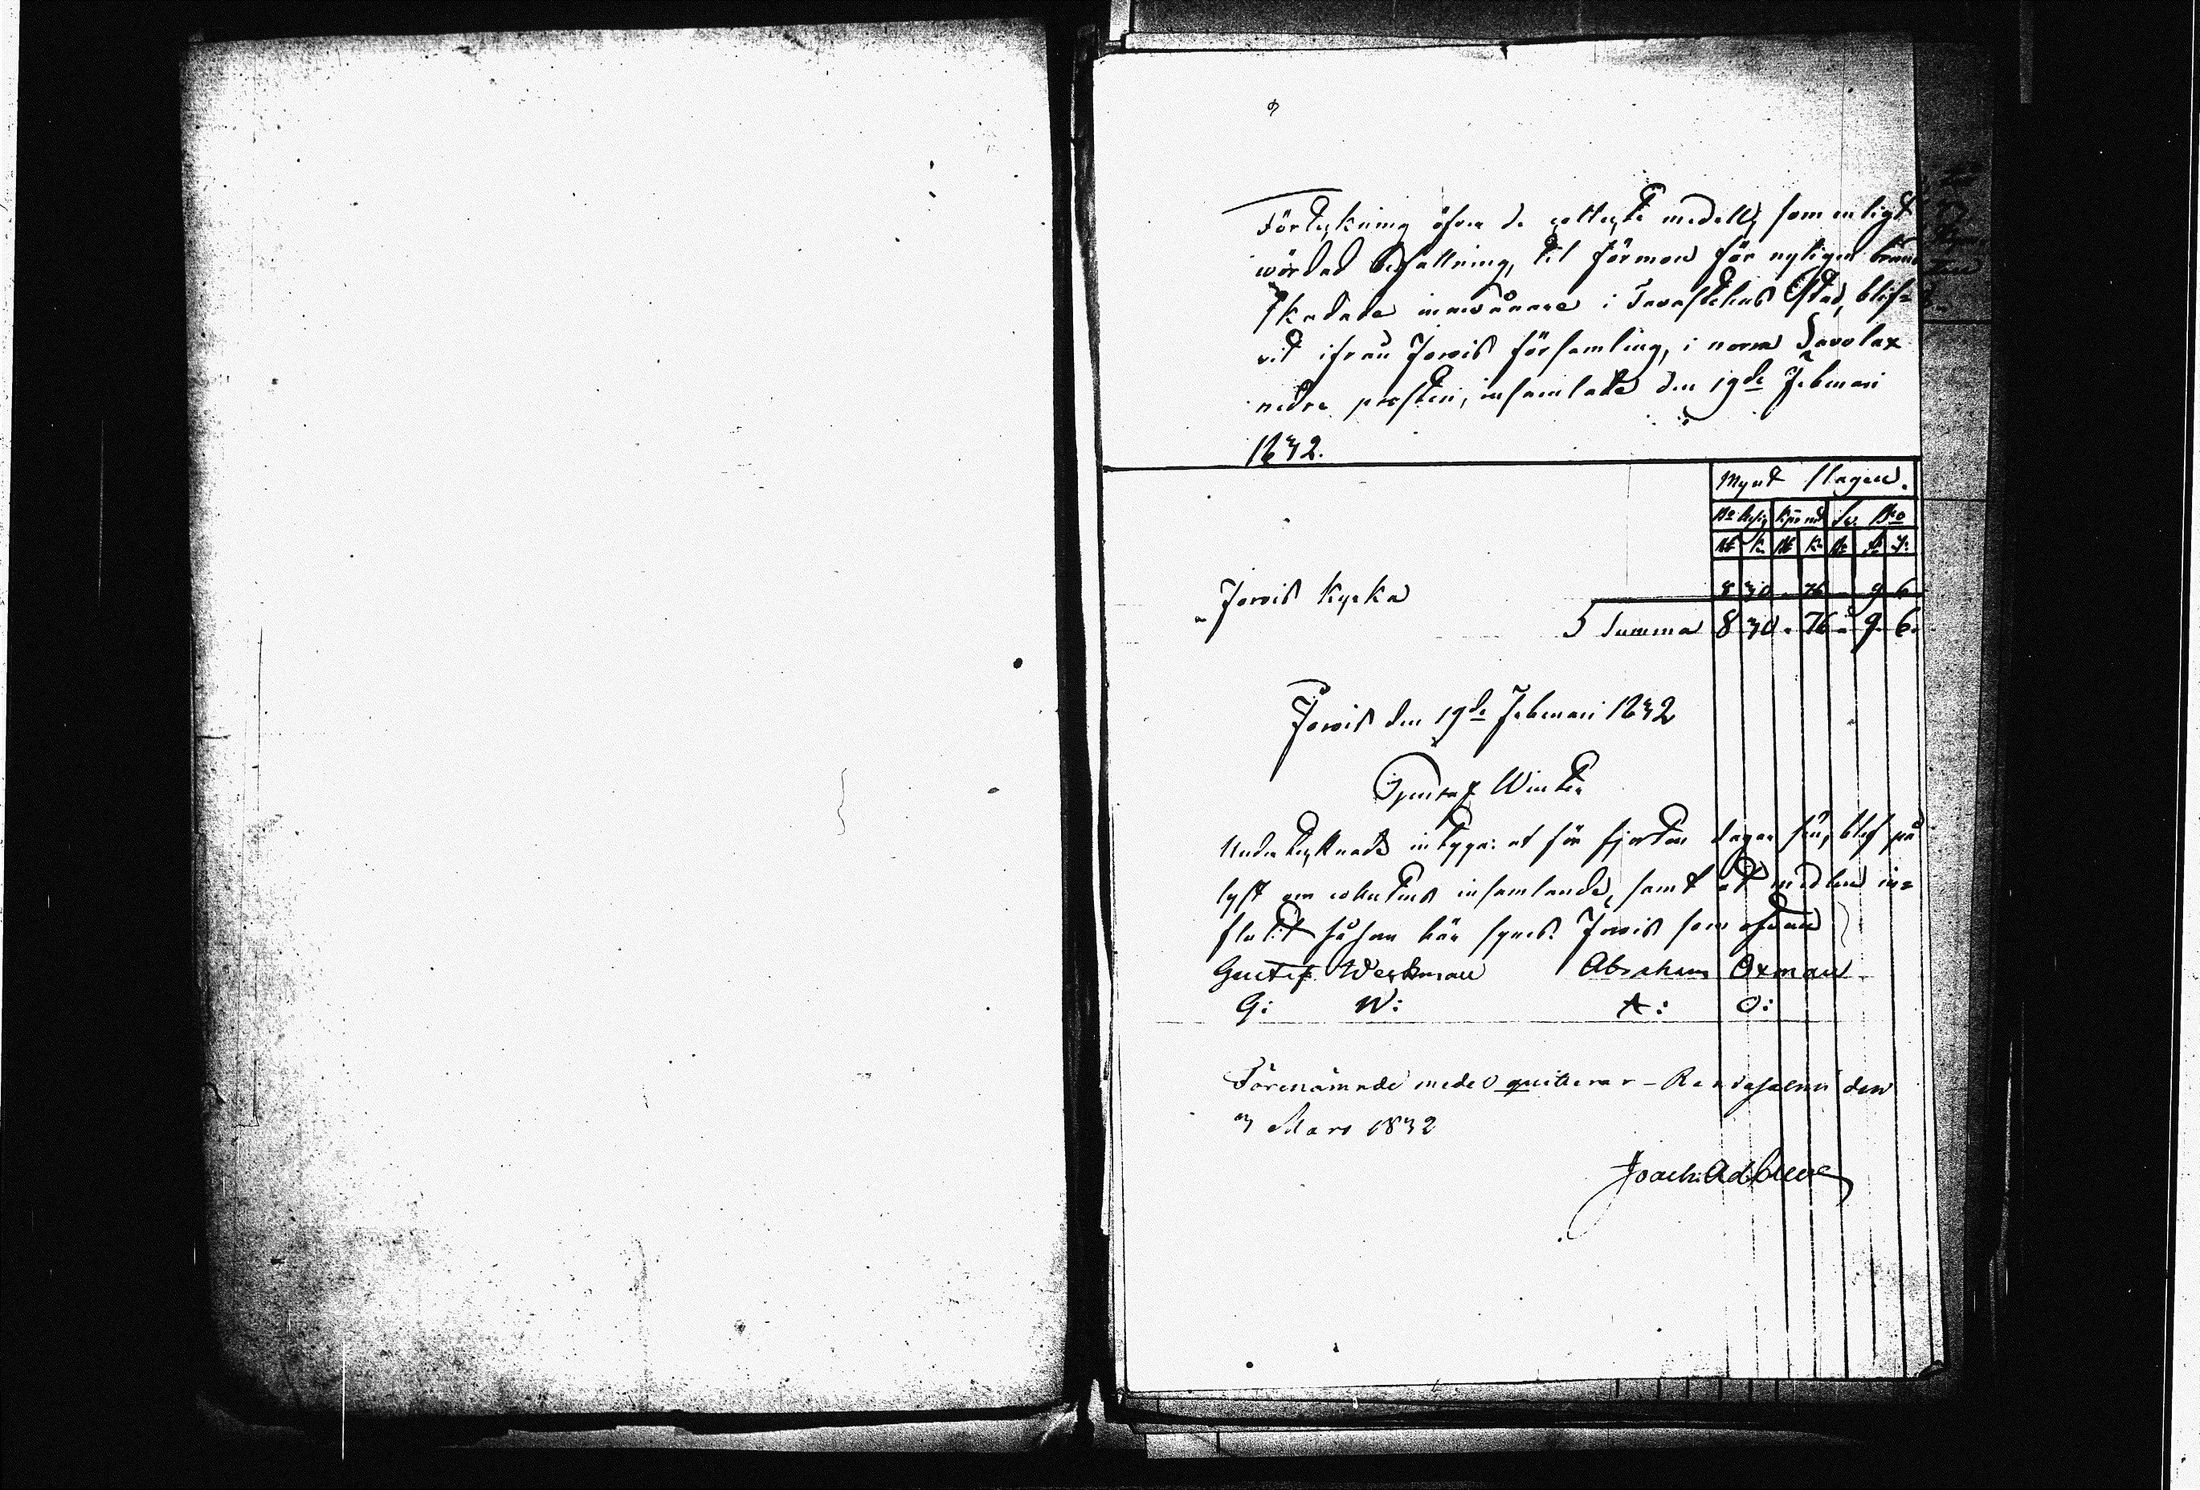 Förtekning öfver de collecte medell, som enligt
wördad befallning, til förmon för nyligen bränd
skadade innevånare i Tavastehus Stad, blif=
vit ifrån Jorois församling, i norra Savolax
nedre prosteri, insamlade den 19de Februari
1832.
Mynt slagen.
Bco Assig. Kopp. mt Sv. Bco
R K R K R S r
Jorois Kyrka 8 30 - 76 - 9 6
Summa 8 30 - 76 - 9 6.
Jorois den 19de Februari 1832
Gustaf Winter
Undertecknade intyga: at för fjorton dagar sen, blef på
lyst om collectens insamlande, samt at medlen in=
flutit såsom här synes. Jorois som ofvan
Gustaf Werkman Abraham Oxman
G: W: A: O:
Förenämnde medel quitterar - Randasalmi den
3 Mars 1832
Joach: Ad: